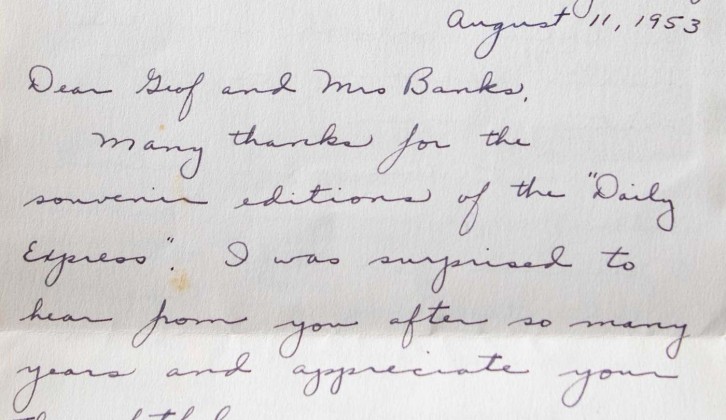 August 11, 1953
Dear Geof and Mrs Banks,
Many thanks for the
souvenir editions of the "Daily
Express". I was surprised to
hear from you after so many
years and appreciate your